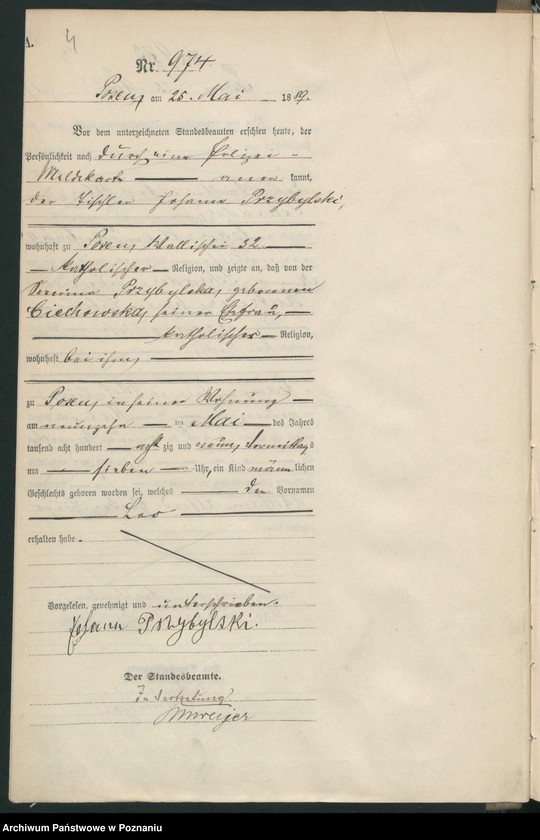 A.
4
Nr. 974.
Posen, am 25. Mai 1889.
Vor dem unterzeichneten Standesbeamten erschien heute, der
Persönlichkeit nach durch eine Polizei-
Meldekarte aner kannt,
der Tischler Johann Przybylski,
wohnhaft zu Posen, Wallischei 32
katholischer Religion, und zeigte an, daß von der
Przybylska, geborenen
Ciechowska, seiner Ehefrau,
katholischer Religion,
wohnhaft bei ihm,
zu Posen, in seiner Wohnung
am neunzehn ten Mai des Jahres
tausend acht hundert acht zig und neun, Vormittags
um sieben Uhr, ein Kind männ lichen
Geschlechts geboren worden sei, welches den Vornamen
Leo
erhalten habe.
Vorgelesen, genehmigt und unterschrieben.
Johann Przybylski.
Der Standesbeamte.
In Vertretung
Archiwum Państwowe w Poznaniu